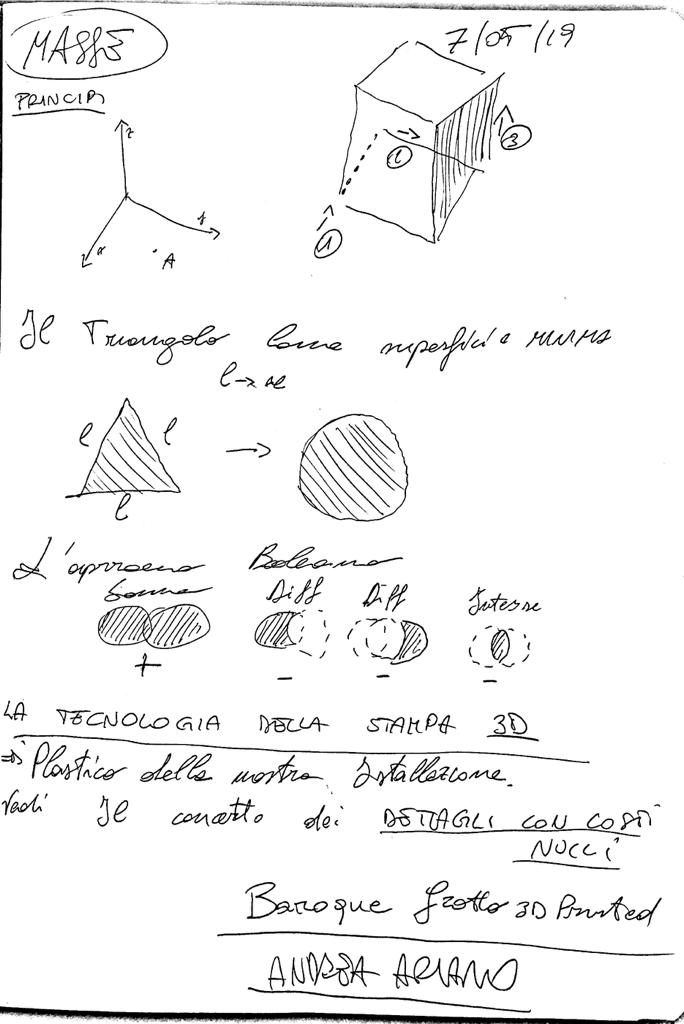 MASSE
7/05/19
PRINCIPI
z
y
x
A
1
2
3
Il Triangolo come superficie minima
l
l
l
L'approccio Booleano
Somma Diff Diff Interse
+ - - -
LA TECNOLOGIA DELLA STAMPA 3D
⇒ Plastico della mostra. Istallazione.
Vedi Il concetto dei DETTAGLI CON COSTI
NULLI
Baroque Grotto 3D Printed
ANDREA ARIANO